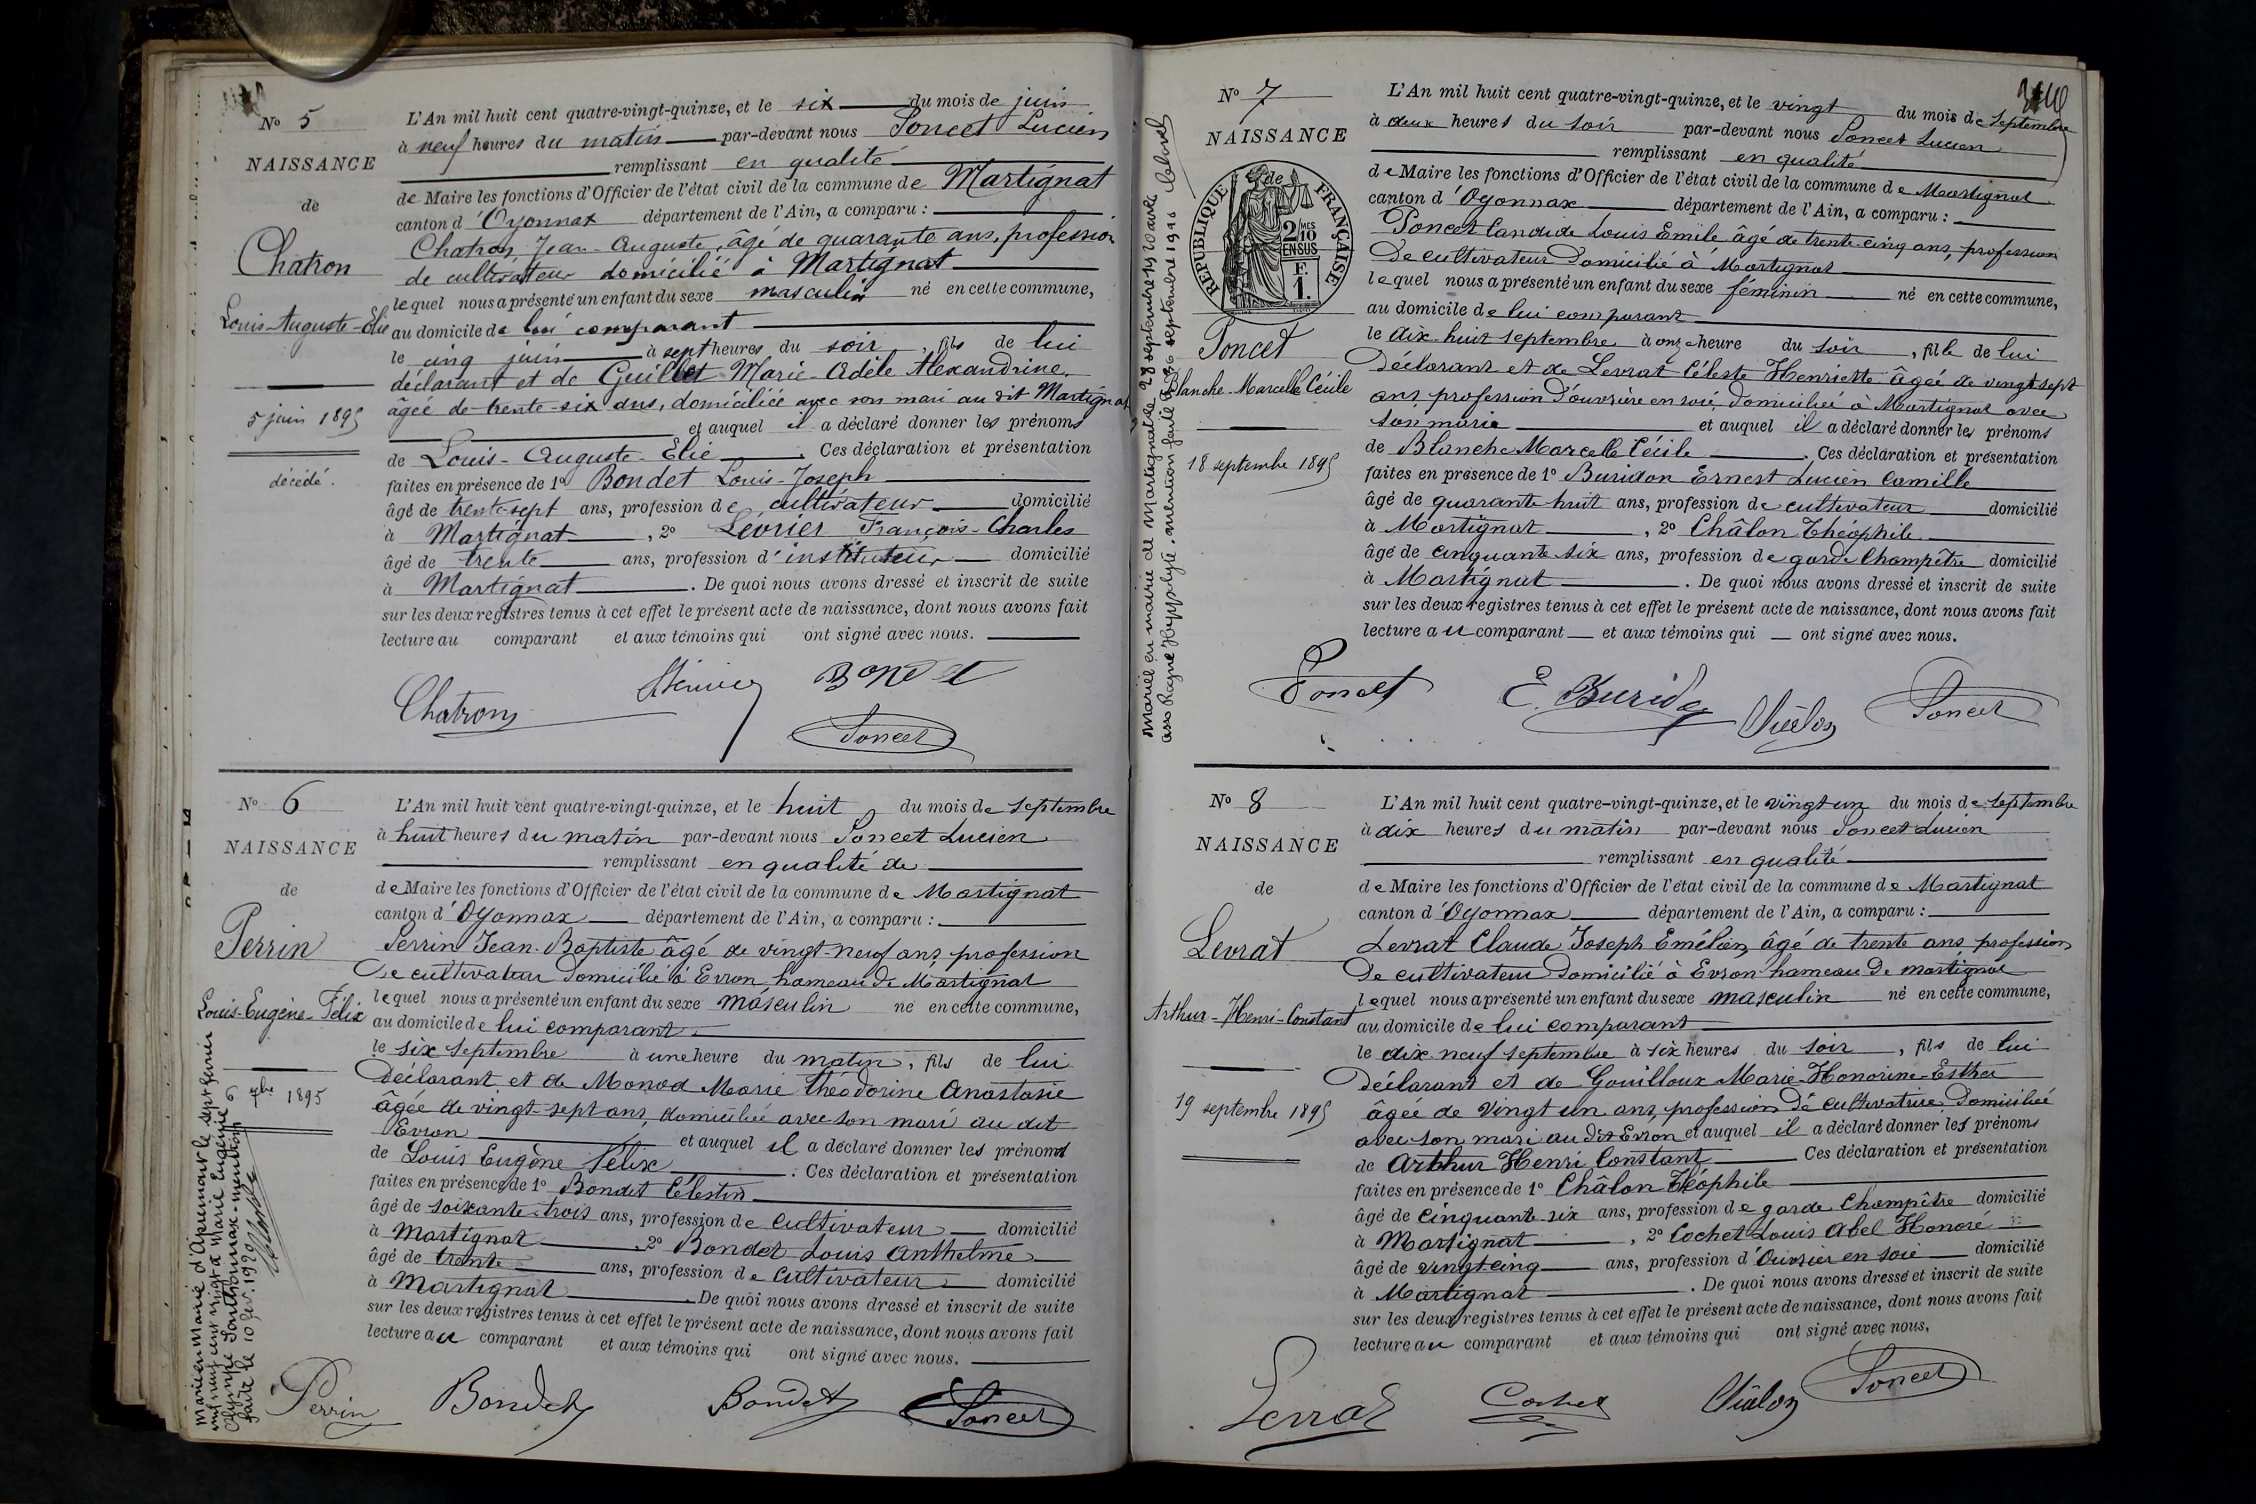 N° 5
NAISSANCE
de
Chatron
Louis-Auguste-Elie
5 juin 1895
décédé.
L'An mil huit cent quatre-vingt-quinze, et le six du mois de juin
à neuf heures du matin par-devant nous Poncet Lucien
remplissant en qualité
de Maire les fonctions d'Officier de l'état civil de la commune de Martignat
canton d'Oyonnax département de l'Ain, a comparu :
Chatron Jean-Auguste, âgé de quarante ans, profession
de cultivateur domicilié à Martignat
lequel nous a présenté un enfant du sexe masculin né en cette commune,
au domicile de lui comparant
le cinq juin à sept heures du soir, fils de lui
déclarant et de Guillet Marie-Adèle Alexandrine,
âgée de trente-six ans, domiciliée avec son mari au dit Martignat
et auquel il a déclaré donner les prénoms
de Louis-Auguste-Elie. Ces déclaration et présentation
faites en présence de 1° Bondet Louis-Joseph
âgé de trente-sept ans, profession de cultivateur domicilié
à Martignat, 2° Lévrier François-Charles
âgé de trente ans, profession d'instituteur domicilié
à Martignat. De quoi nous avons dressé et inscrit de suite
sur les deux registres tenus à cet effet le présent acte de naissance, dont nous avons fait
lecture au comparant et aux témoins qui ont signé avec nous.
Chatron Bondet
Poncet
N° 6
NAISSANCE
de
Perrin
Louis-Eugène-Félix
6 7bre 1895
Marié en mairie d'Apremont le sept février
mil neuf cent vingt à Marie Eugénie
Olympe Sonthonnax - mention
faite le 10 fév. 1920
L'An mil huit cent quatre-vingt-quinze, et le huit du mois de septembre
à huit heures du matin par-devant nous Poncet Lucien
remplissant en qualité de
de Maire les fonctions d'Officier de l'état civil de la commune de Martignat
canton d'Oyonnax département de l'Ain, a comparu :
Perrin Jean-Baptiste âgé de vingt-neuf ans, profession
de cultivateur domicilié à Evron hameau de Martignat
lequel nous a présenté un enfant du sexe masculin né en cette commune,
au domicile de lui comparant
le six septembre à une heure du matin, fils de lui
déclarant et de Monod Marie Théodorine Anastasie
âgée de vingt-sept ans, domiciliée avec son mari au dit
Evron et auquel il a déclaré donner les prénoms
de Louis Eugène Félix. Ces déclaration et présentation
faites en présence de 1° Bondet Célestin
âgé de soixante-trois ans, profession de cultivateur domicilié
à Martignat 2° Bondet Louis Anthelme
âgé de trente ans, profession de cultivateur domicilié
à Martignat. De quoi nous avons dressé et inscrit de suite
sur les deux registres tenus à cet effet le présent acte de naissance, dont nous avons fait
lecture au comparant et aux témoins qui ont signé avec nous.
Perrin Bondet Bondet Poncet
N° 7
NAISSANCE
de
RÉPUBLIQUE FRANÇAISE
2 MES 10
EN SUS
F.
1.
Poncet
Blanche-Marcelle Cécile
18 septembre 1895
L'An mil huit cent quatre-vingt-quinze, et le vingt du mois de septembre
à deux heures du soir par-devant nous Poncet Lucien
remplissant en qualité
de Maire les fonctions d'Officier de l'état civil de la commune de Martignat
canton d'Oyonnax département de l'Ain, a comparu :
Poncet Candide Louis Emile âgé de trente-cinq ans, profession
de cultivateur domicilié à Martignat
lequel nous a présenté un enfant du sexe féminin né en cette commune,
au domicile de lui comparant
le dix huit septembre à onze heure du soir, fille de lui
déclarant et de Levrat Céleste Henriette âgée de vingt sept
ans, profession d'ouvrière en soie, domiciliée à Martignat avec
son mari et auquel il a déclaré donner les prénoms
de Blanche Marcelle Cécile. Ces déclaration et présentation
faites en présence de 1° Buridon Ernest Lucien Camille
âgé de quarante huit ans, profession de cultivateur domicilié
à Martignat, 2° Châlon Théophile
âgé de cinquante six ans, profession de garde champêtre domicilié
à Martignat. De quoi nous avons dressé et inscrit de suite
sur les deux registres tenus à cet effet le présent acte de naissance, dont nous avons fait
lecture au comparant et aux témoins qui ont signé avec nous.
Poncet E. Burido Châlon Poncet
N° 8
NAISSANCE
de
Levrat
Arthur-Henri-Constant
19 septembre 1895
L'An mil huit cent quatre-vingt-quinze, et le vingt un du mois de septembre
à dix heures du matin par-devant nous Poncet Lucien
remplissant en qualité
de Maire les fonctions d'Officier de l'état civil de la commune de Martignat
canton d'Oyonnax département de l'Ain, a comparu :
Levrat Claude Joseph Emélien, âgé de trente ans profession
de cultivateur domicilié à Evron hameau de Martignat
lequel nous a présenté un enfant du sexe masculin né en cette commune,
au domicile de lui comparant
le dix neuf septembre à six heures du soir, fils de lui
déclarant et de Gouilloux Marie-Honorine-Esther
âgée de vingt un ans, profession de cultivatrice domiciliée
avec son mari au dit Evron et auquel il a déclaré donner les prénoms
de Arthur Henri Constant Ces déclaration et présentation
faites en présence de 1° Châlon Théophile
âgé de cinquante six ans, profession de garde champêtre domicilié
à Martignat, 2° Cochet Louis Abel Honoré
âgé de vingt-cinq ans, profession d'ouvrier en soie domicilié
à Martignat. De quoi nous avons dressé et inscrit de suite
sur les deux registres tenus à cet effet le présent acte de naissance, dont nous avons fait
lecture au comparant et aux témoins qui ont signé avec nous.
Levrat Cochet Châlon Poncet